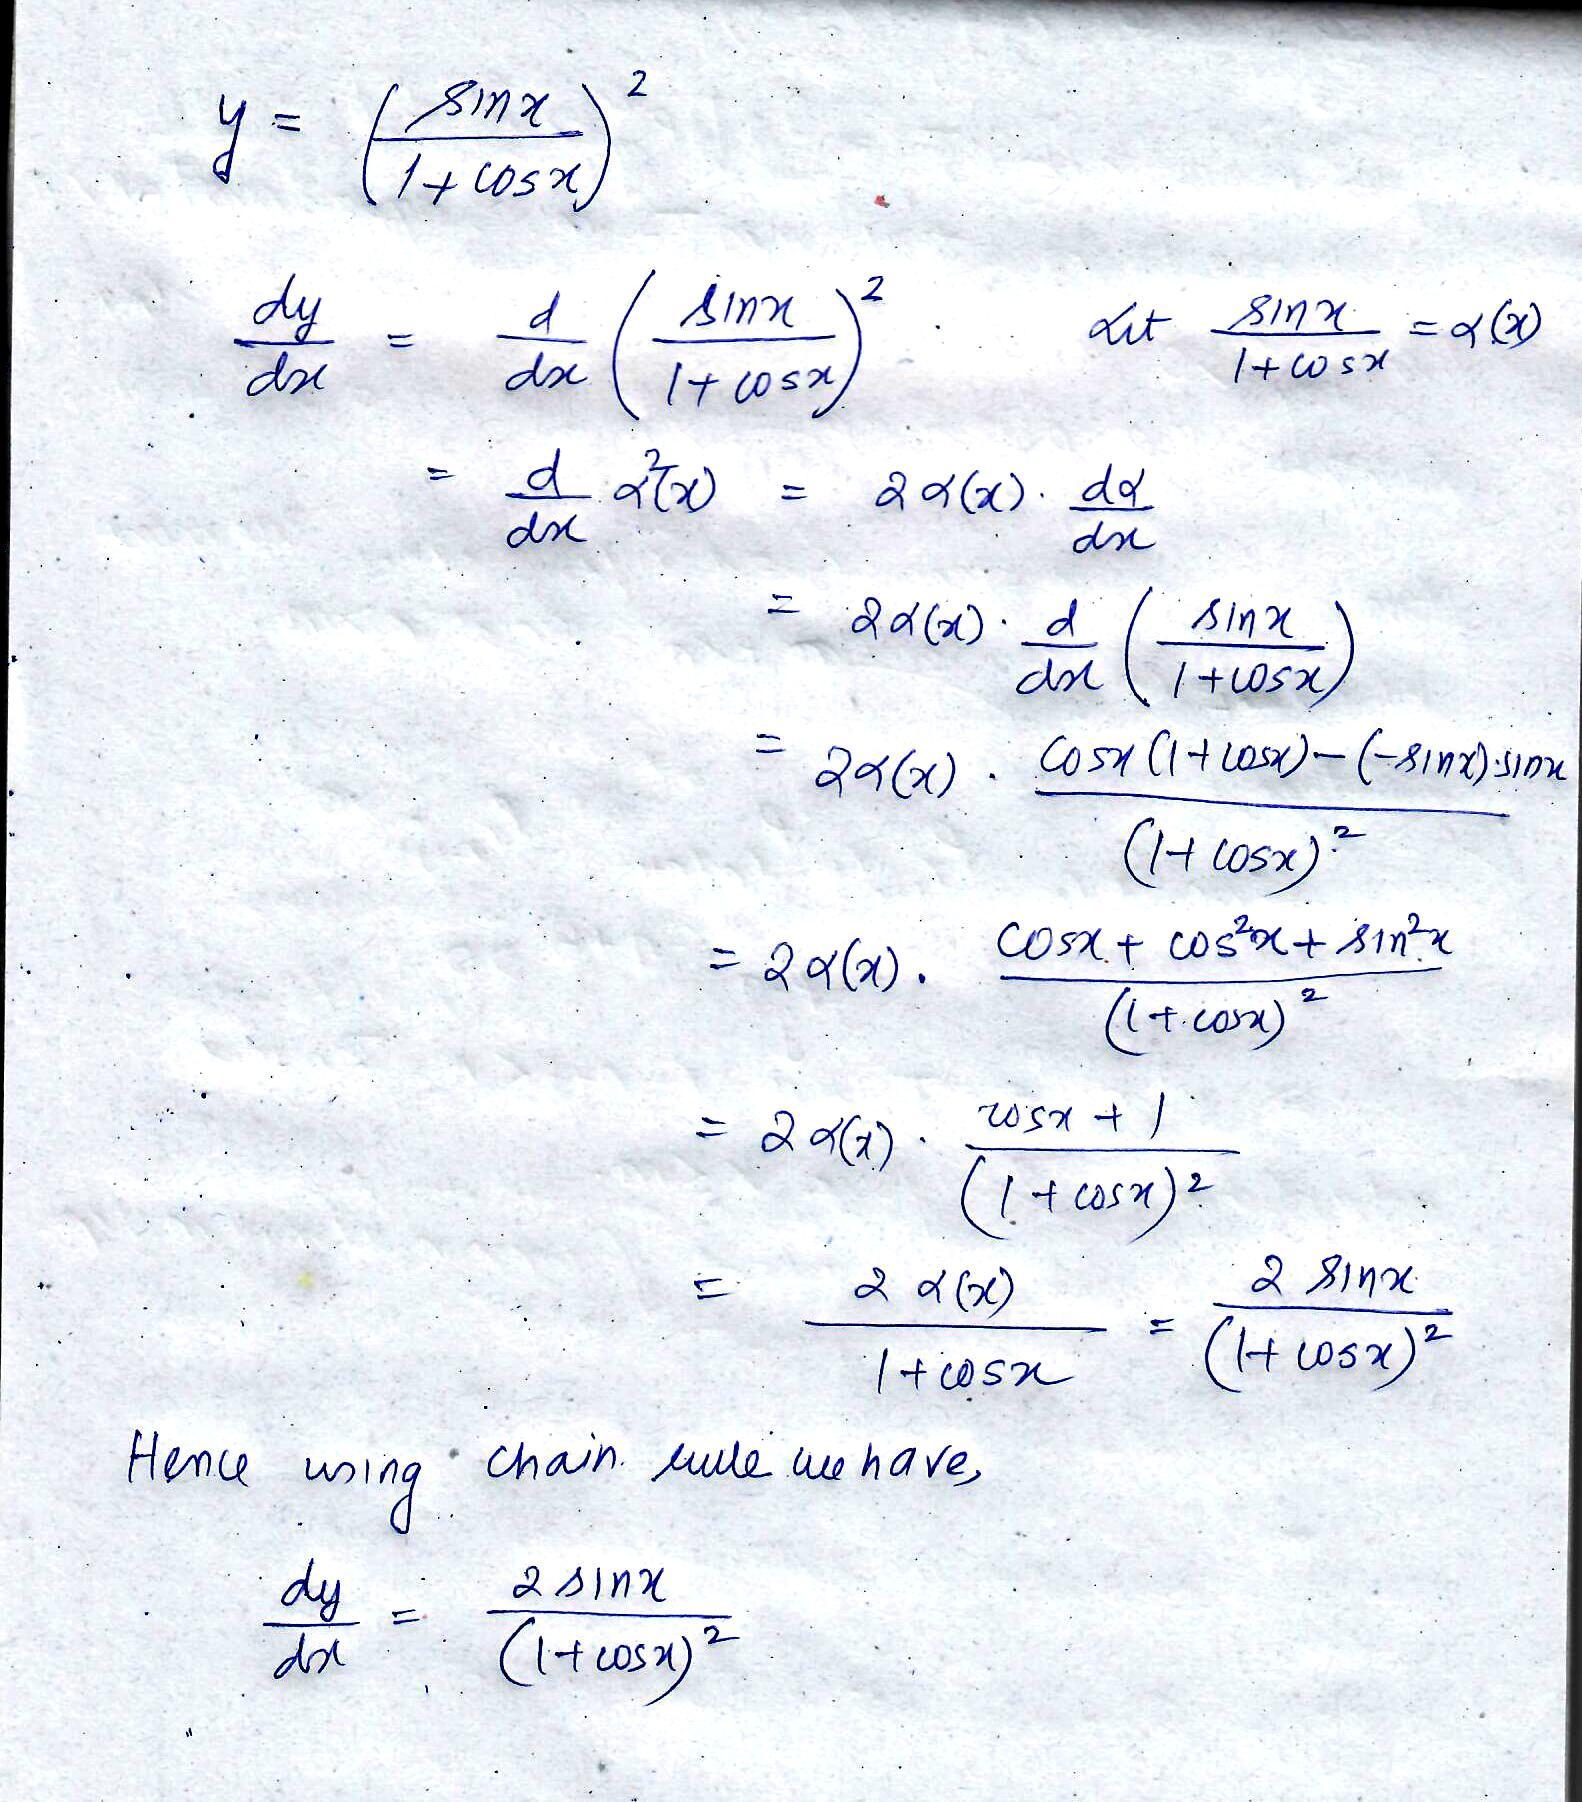 y = (sinx / 1+cosx)²
dy/dx = d/dx (sinx / 1+cosx)². Let sinx / 1+cosx = α(x)
= d/dx α²(x) = 2α(x). dα/dx
= 2α(x). d/dx (sinx / 1+cosx)
= 2α(x). cosx(1+cosx)-(-sinx).sinx / (1+cosx)²
= 2α(x). cosx + cos²x + sin²x / (1+cosx)²
= 2α(x). cosx + 1 / (1+cosx)²
= 2α(x) / 1+cosx = 2 sinx / (1+cosx)²
Hence using chain rule we have,
dy/dx = 2 sinx / (1+cosx)²